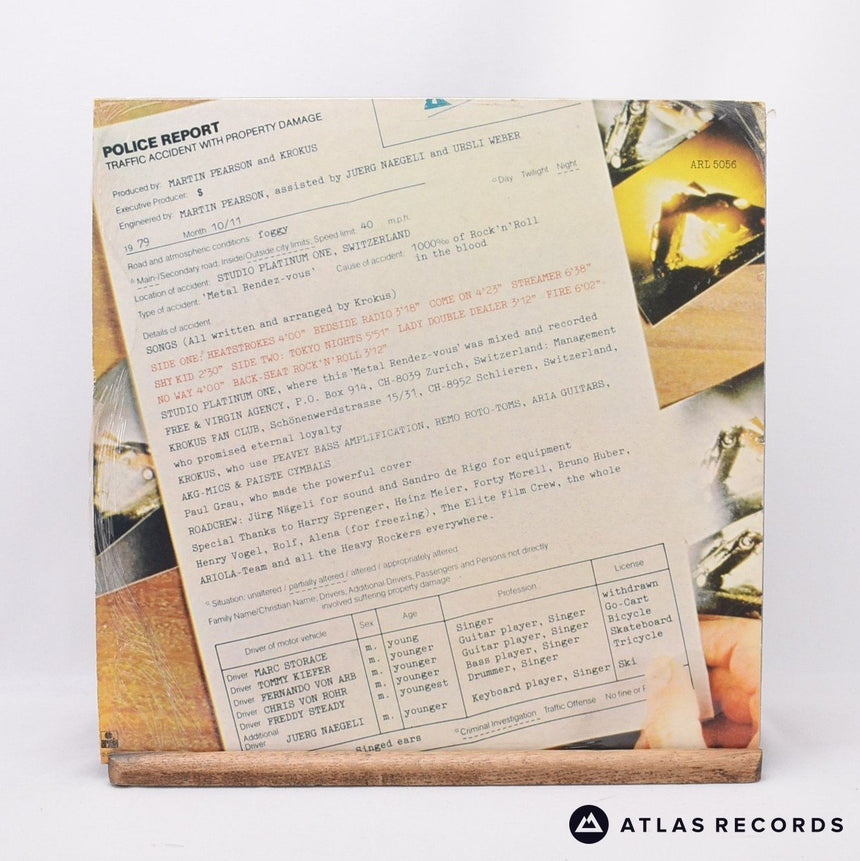 POLICE REPORT
TRAFFIC ACCIDENT WITH PROPERTY DAMAGE
ARL 5056
Produced by: MARTIN PEARSON and KROKUS
Executive Producer: $
Engineered by: MARTIN PEARSON, assisted by JUERG NAEGELI and URSLI WEBER
°Day Twilight Night
1979 Month 10/11
Road and atmospheric conditions: foggy
° Main-/Secondary road; Inside/Outside city limits; Speed limit: 40 m.p.h.
Location of accident: STUDIO PLATINUM ONE, SWITZERLAND
Type of accident: 'Metal Rendez-vous' Cause of accident: 1000‰ of Rock'n'Roll
in the blood
Details of accident
SONGS (All written and arranged by Krokus)
SIDE ONE: HEATSTROKES 4'00" BEDSIDE RADIO 3'18" COME ON 4'23" STREAMER 6'38"
SHY KID 2'30" SIDE TWO: TOKYO NIGHTS 5'51" LADY DOUBLE DEALER 3'12" FIRE 6'02"
NO WAY 4'00" BACK-SEAT ROCK'N'ROLL 3'12"
STUDIO PLATINUM ONE, where this 'Metal Rendez-vous' was mixed and recorded
FREE & VIRGIN AGENCY, P.O. Box 914, CH-8039 Zurich, Switzerland: Management
KROKUS FAN CLUB, Schönenwerdstrasse 15/31, CH-8952 Schlieren, Switzerland,
who promised eternal loyalty
KROKUS, who use PEAVEY BASS AMPLIFICATION, REMO ROTO-TOMS, ARIA GUITARS,
AKG-MICS & PAISTE CYMBALS
Paul Grau, who made the powerful cover
ROADCREW: Jürg Nägeli for sound and Sandro de Rigo for equipment
Special Thanks to Harry Sprenger, Heinz Meier, Forty Morell, Bruno Huber,
Henry Vogel, Rolf, Alena (for freezing), The Elite Film Crew, the whole
ARIOLA-Team and all the Heavy Rockers everywhere.
° Situation: unaltered / partially altered / altered / appropriately altered
Family Name/Christian Name; Drivers, Additional Drivers, Passengers and Persons not directly
involved suffering property damage
Driver of motor vehicle Sex Age Profession License
Driver MARC STORACE m. young Singer withdrawn
Driver TOMMY KIEFER m. younger Guitar player, Singer Go-Cart
Driver FERNANDO VON ARB m. younger Guitar player, Singer Bicycle
Driver CHRIS VON ROHR m. younger Bass player, Singer Skateboard
Driver FREDDY STEADY m. youngest Drummer, Singer Tricycle
Additional
Driver JUERG NAEGELI m. younger Keyboard player, Singer Ski
Singed ears °Criminal Investigation Traffic Offense No fine or
ATLAS RECORDS